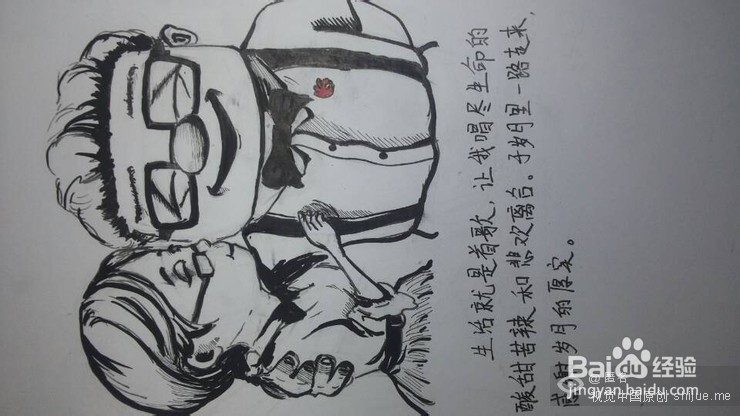 生活就是首歌，让我唱尽生命的
酸甜苦辣和悲欢离合。于岁月里一路走来，
岁月的厚实。
Baidu经验
jingyan.baidu.com
视觉中国原创 shijue.me